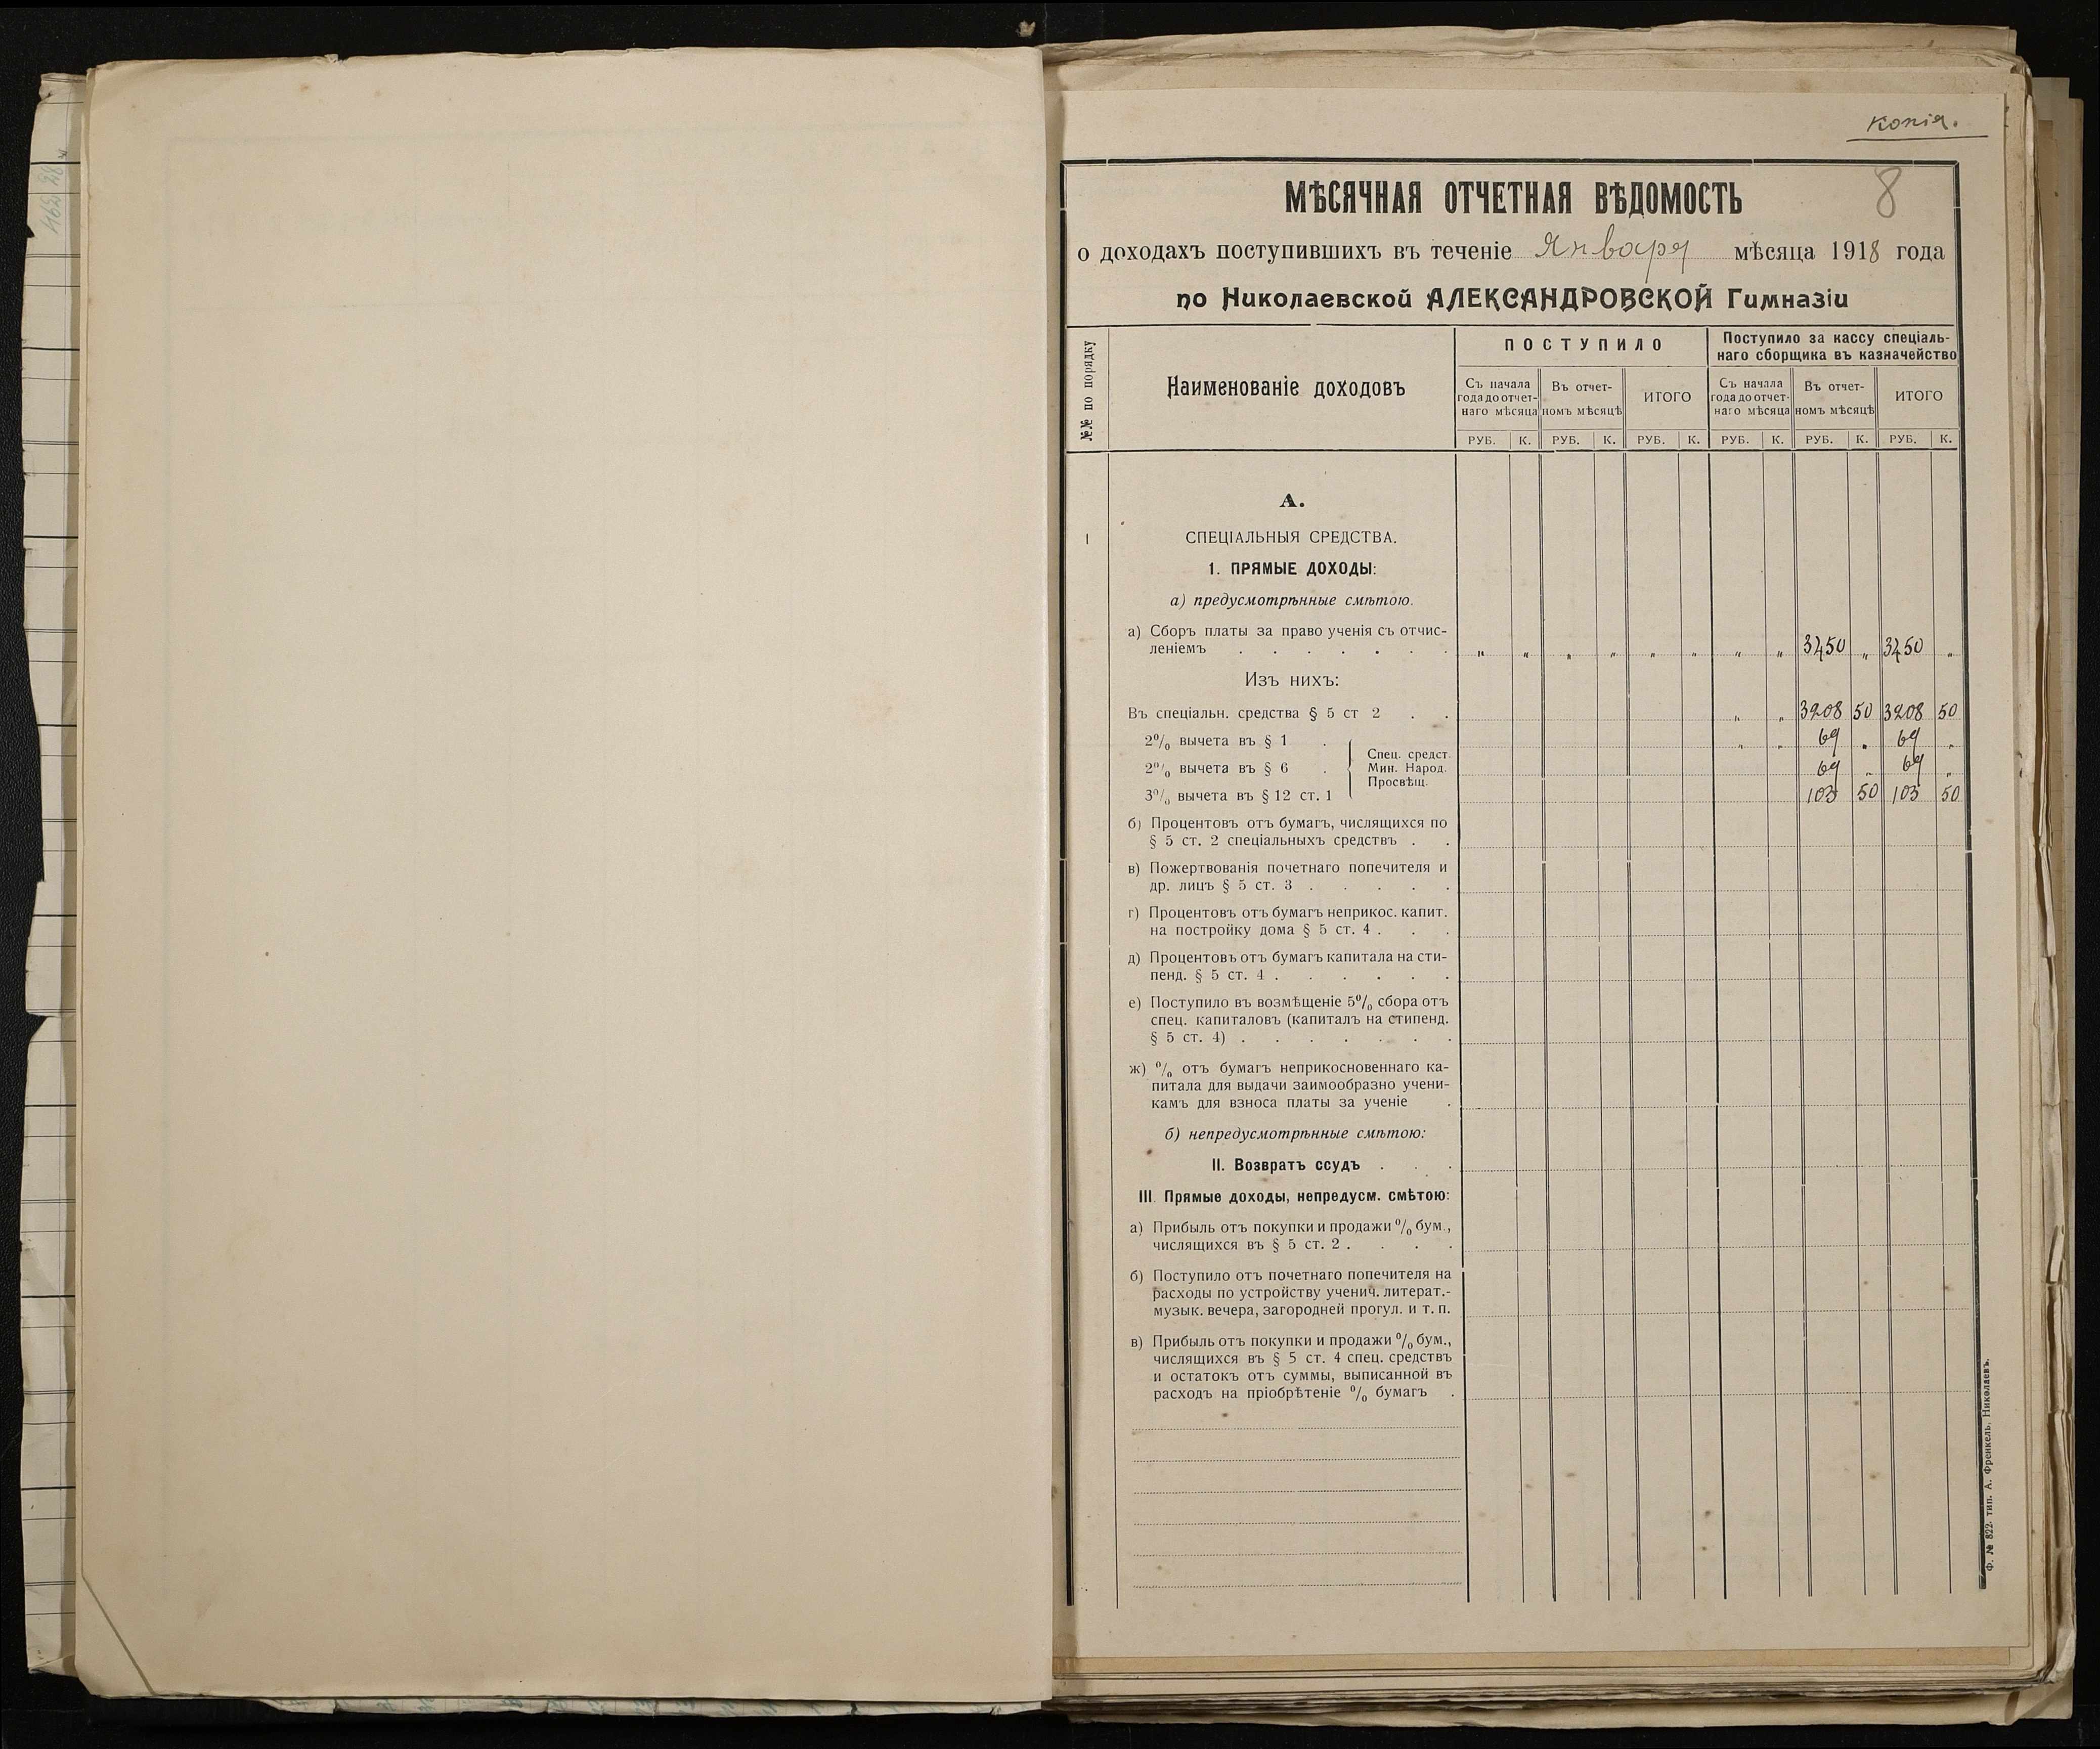 Копія.
8
МѢСЯЧНАЯ ОТЧЕТНАЯ ВѢДОМОСТЬ
о доходахъ поступившихъ въ теченіе Января мѣсяца 1918 года
по Николаевской АЛЕКСАНДРОВСКОЙ Гимназіи
№№ по порядку
Наименованіе доходовъ
ПОСТУПИЛО
Поступило за кассу спеціаль-
наго сборщика въ казначейство
Съ начала
года до отчет-
наго мѣсяца
Въ отчет-
номъ мѣсяцѣ
ИТОГО
Съ начала
года до отчет-
наго мѣсяца
Въ отчет-
номъ мѣсяцѣ
ИТОГО
РУБ. К. РУБ. К. РУБ. К. РУБ. К. РУБ. К. РУБ. К.
А.
1 СПЕЦІАЛЬНЫЯ СРЕДСТВА.
1. ПРЯМЫЕ ДОХОДЫ:
а) предусмотрѣнные смѣтою.
а) Сборъ платы за право ученія съ отчис-
леніемъ . . . . . . . „ „ „ „ „ „ „ „ 3450 „ 3450 „
Изъ нихъ:
Въ спеціальн. средства § 5 ст 2 . . „ „ 3208 50 3208 50
2% вычета въ § 1 . „ „ 69 „ 69 „
2% вычета въ § 6 . 69 „ 69 „
3% вычета въ § 12 ст. 1 103 50 103 50
Спец. средст.
Мин. Народ.
Просвѣщ.
б) Процентовъ отъ бумагъ, числящихся по
§ 5 ст. 2 спеціальныхъ средствъ . .
в) Пожертвованія почетнаго попечителя и
др. лицъ § 5 ст. 3 . . . . .
г) Процентовъ отъ бумагъ неприкос. капит.
на постройку дома § 5 ст. 4 . . .
д) Процентовъ отъ бумагъ капитала на сти-
пенд. § 5 ст. 4 . . . . . .
е) Поступило въ возмѣщеніе 5% сбора отъ
спец. капиталовъ (капиталъ на стипенд.
§ 5 ст. 4) . . . . . . .
ж) % отъ бумагъ неприкосновеннаго ка-
питала для выдачи заимообразно учени-
камъ для взноса платы за ученіе .
б) непредусмотрѣнные смѣтою:
II. Возвратъ ссудъ . . .
III. Прямые доходы, непредусм. смѣтою:
а) Прибыль отъ покупки и продажи % бум.,
числящихся въ § 5 ст. 2 . . . .
б) Поступило отъ почетнаго попечителя на
расходы по устройству ученич. литерат.-
музык. вечера, загородней прогул. и т. п.
в) Прибыль отъ покупки и продажи % бум.,
числящихся въ § 5 ст. 4 спец. средствъ
и остатокъ отъ суммы, выписанной въ
расходъ на пріобрѣтеніе % бумагъ .
Ф. № 822. тип. А. Френкель, Николаевъ.